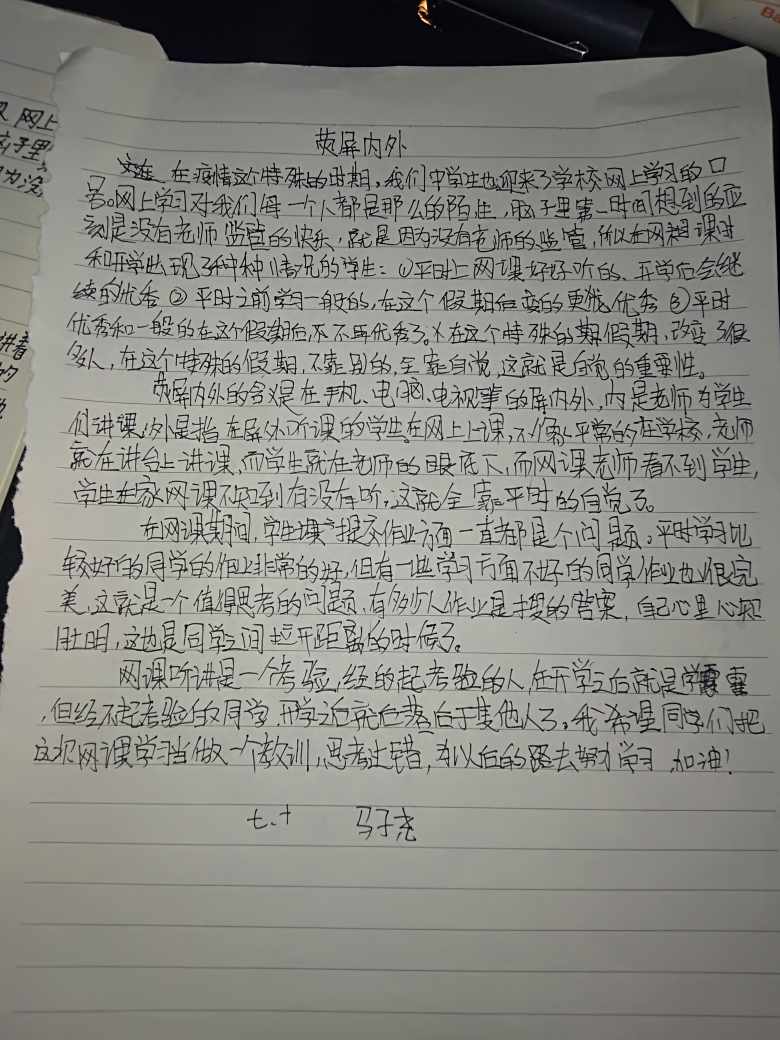 荧屏内外
在疫情这个特殊的时期,我们中学生也迎来了学校网上学习的口
号。网上学习对我们每一个人都是那么的陌生,脑子里第一时间想到的应
该是没有老师监管的快乐,就是因为没有老师的监管,所以在网课时
和开学出现了种种情况的学生:①平时上网课好好听的、开学后会继
续的优秀②平时之前学习一般的,在这个假期后变的更优秀③平时
优秀和一般的在这个假期后不再优秀了。在这个特殊的假期,改变了很
多人,在这个特殊的假期,不靠别的,全靠自觉,这就是自觉的重要性。
荧屏内外的含义是在手机、电脑、电视等的屏内外,内是老师为学生
们讲课,外是指在屏外听课的学生。在网上上课,不像平常的在学校,老师
就在讲台上讲课,而学生就在老师的眼底下,而网课老师看不到学生,
学生在家网课不知到有没有听,这就全靠平时的自觉了。
在网课期间,学生提交作业方面一直都是个问题。平时学习比
较好的同学的作业非常的好,但有一些学习方面不好的同学作业也很完
美,这就是一个值得思考的问题,有多少人作业是搜的答案,自己心里心知
肚明,这也是同学之间拉开距离的时候了。
网课听讲是一个考验,经的起考验的人,在开学之后就是学霸
,但经不起考验的同学,开学之后就后落后于其他人了。我希望同学们把
这次网课学习当做一个教训,思考过错,为以后的路去努力学习,加油!
七.十 马子尧
网上
子里
讲着
的